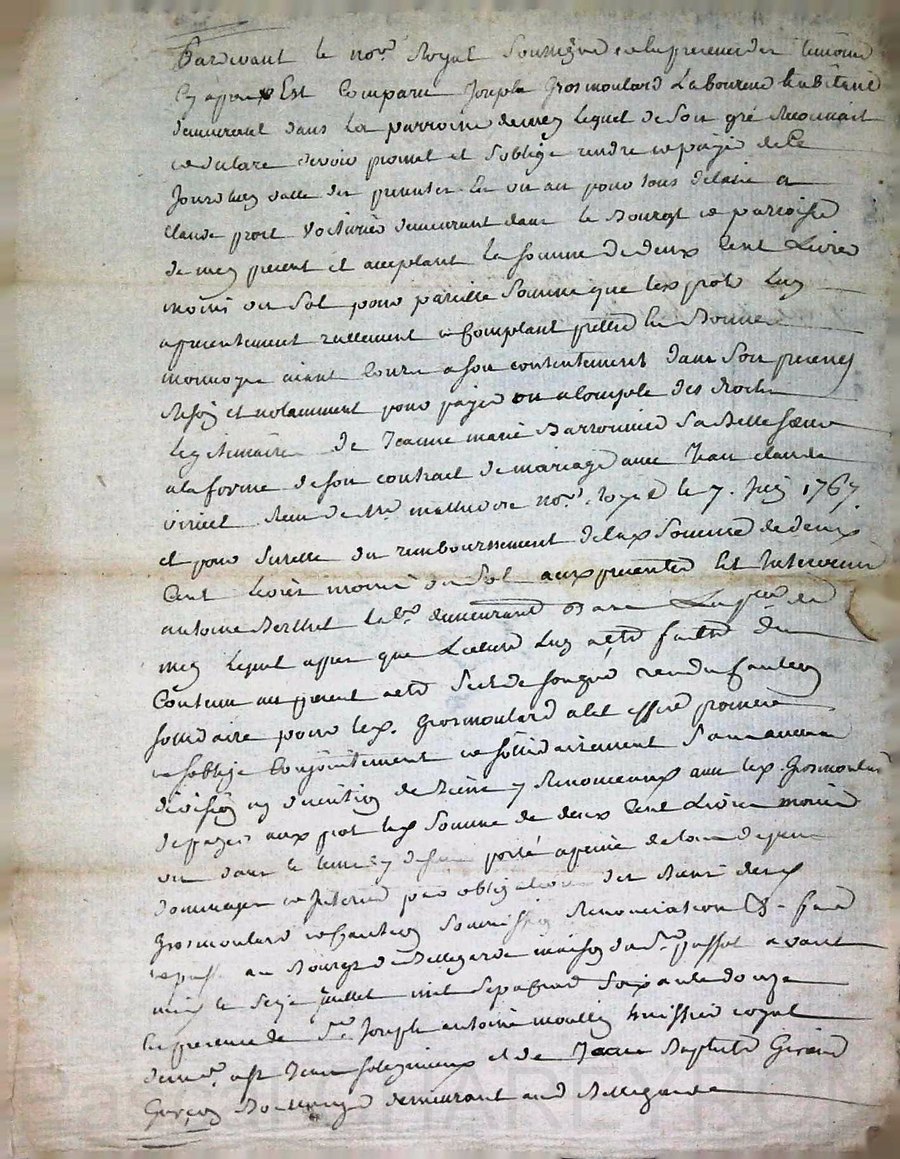 Pardevant le nore Royal Soussigné et en la presence des temoins
Cy apres Est Comparu Joseph Grosmoulard Laboureur habitant
demeurant dans la parroisse de mey lequel de Son gré Reconnait
et declare devoir promet et S'oblige rendre et payer de Ce
Jourd'huy datte des presentes En un an pour tous delais a
Claude prost Voiturier demeurant dans le Bourg et parroisse
de mey present et acceptant la Somme de deux Cent Livres
moins un Sol pour pareille Somme que lex prost luy
a presentement reellement et Comptant pretté En Bonne
monnoye aiant Cours a son contentement dans Son present
et notamment pour payer un acompte des droits
legitimaires de Jeanne marie Barronnier Sa Belle Soeur
a la forme de son contrait de mariage avec Jean claude
Reçu de Me nore royal le 7. 1767.
et pour Surette du remboursement de lax Somme de deux
Cent Livres moins un Sol aux presentes Est Intervenu
antoine Berthet labr demeurant dans La psse de
mey lequel apres que Lecture Luy a été faitte du
Contenu au present acte S'est de son gré rendu Caution
solidaire pour lex. Grosmoulard a l'effet promet
et s'oblige Conjointement et Solidairement Sans aucune
division ny discution de Biens y Renonceant avec lex. Grosmoulard
de payer aux prost lax Somme de deux Cent Livres moins
un dans le terme porté a peine de tous depens
dommages et Interets par obligation des Biens desx
Grosmoulard et Caution Soumission Renonciation &- fait
et passé au Bourg de Bellegarde maison du Sr passot avant
midy le Seize Juillet mil Sept Cent Soixante douze
En presence de Sr Joseph antoine moulin huissier royal
demt a St Jean Soleymieux et de Jean Baptiste Girard
Garçon Boulanger demeurant aud Bellegarde